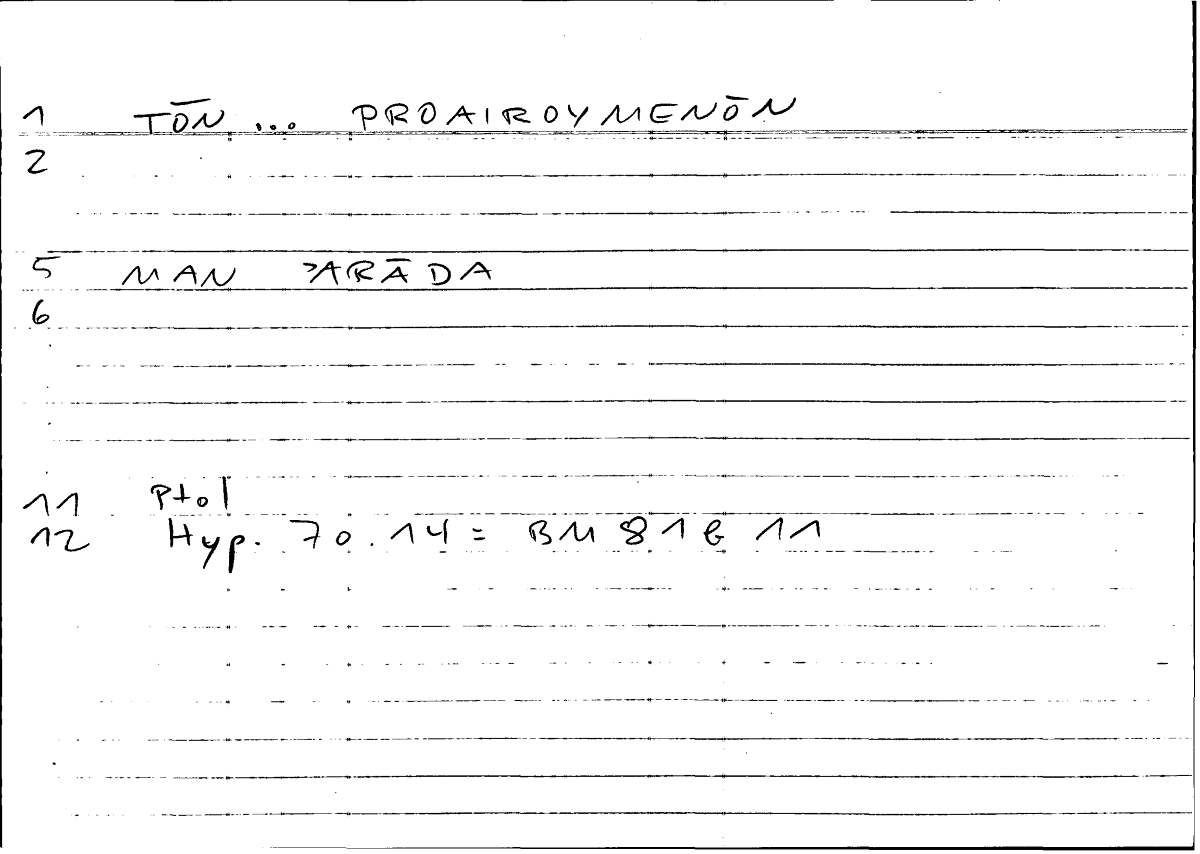 1 TŌN ... PROAIROYMENŌN
2
5 MAN ʾARĀDA
6
11 Ptol
12 Hyp. 70.14 = BM 81 b 11